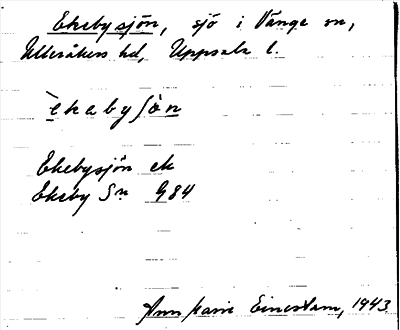 Ekebysjön, sjö i Vänge sn,
Ulleråkers hd, Uppsala l.
èkebyſö̀n
Ekebysjön ek
Ekeby Sn G84
Ann Marie Einerstam, 1943